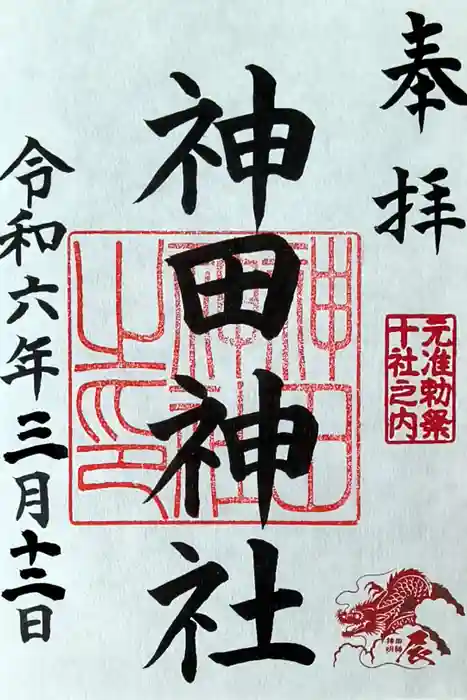 奉拝
元准勅祭
十社之内
神田神社
神田
神社
之印
令和六年三月十二日
辰
神田
明神